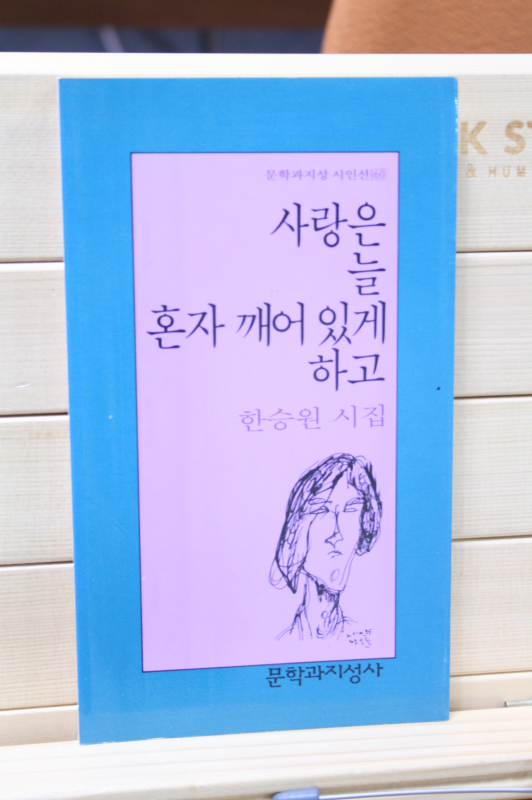 문학과지성 시인선
사랑은
늘
혼자 깨어 있게
하고
한승원 시집
문학과지성사
K ST
& HUM